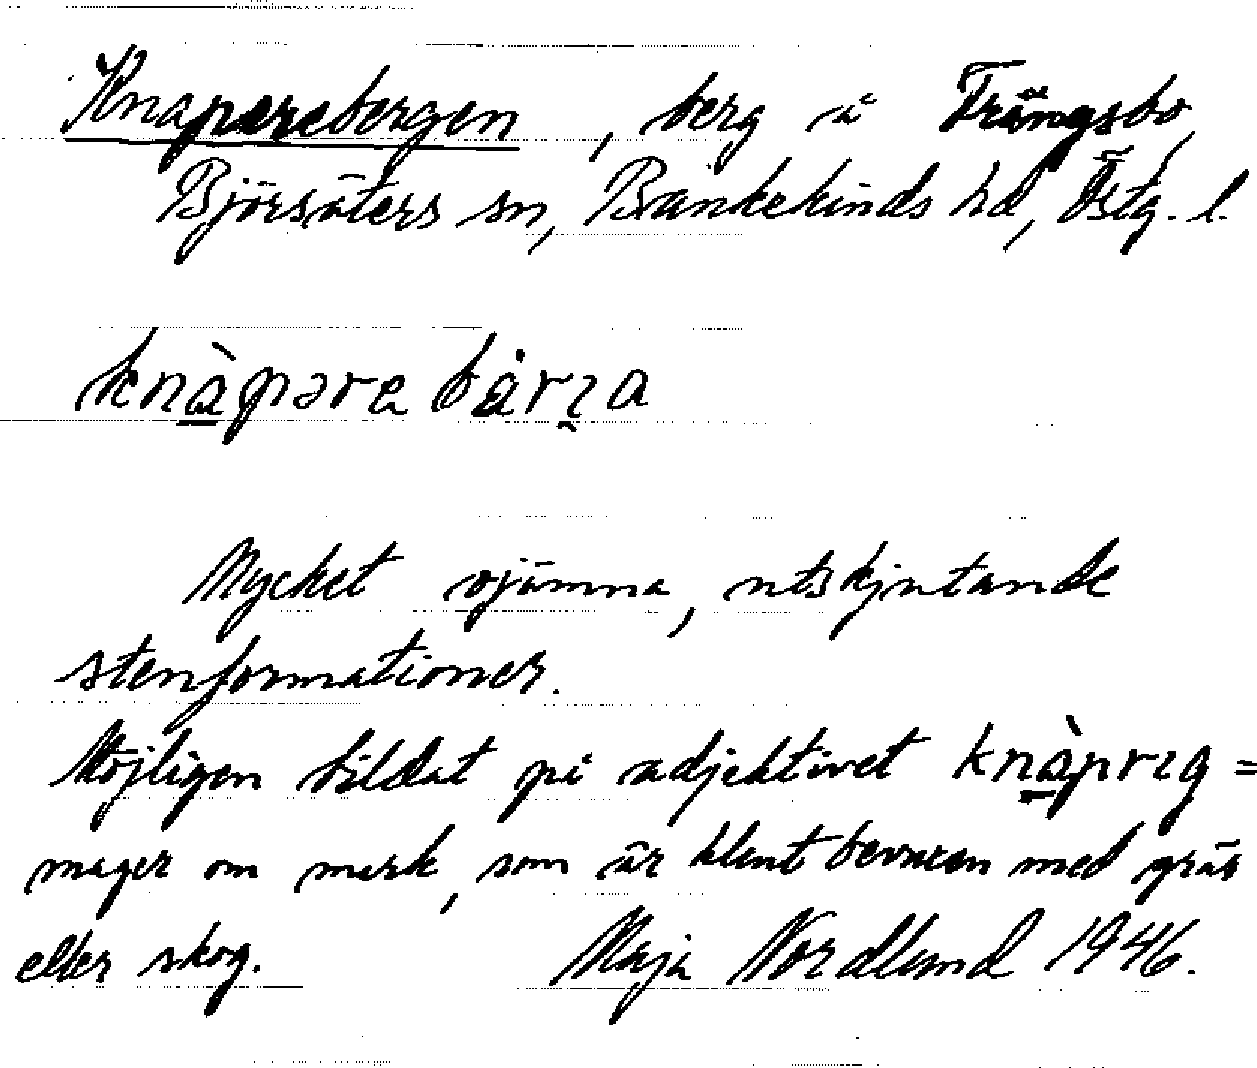 Knaparebergen, berg å Frängsbo,
Björsäters sn, Bankekinds hd, Östg. l.
knàpəra bärɪa
Mycket ojämna, utskjutande
stenformationer.
Möjligen bildat på adjektivet knàprɪg =
mager om mark, som är klent bevuxen med gräs
eller skog. Maja Nordlund 1946.